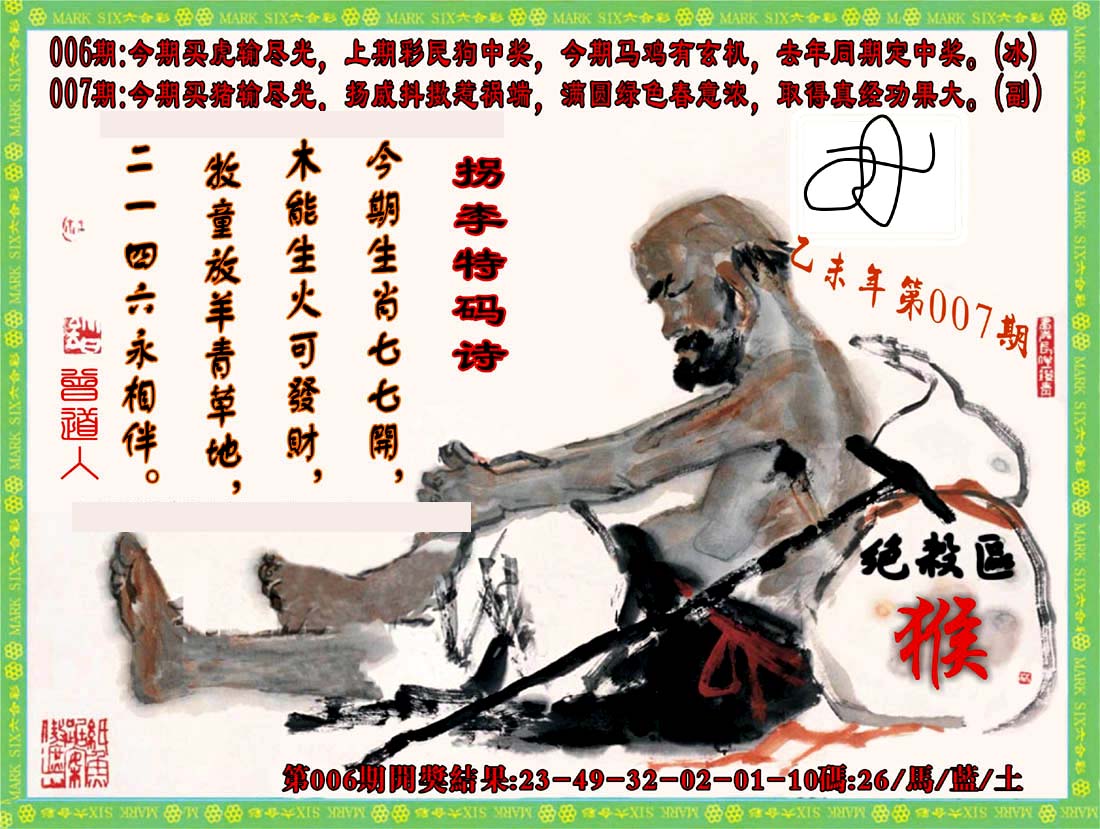 MARK SIX六合彩
006期:今期买虎输尽光，上期彩民狗中奖，今期马鸡有玄机，去年同期定中奖。(冰)
007期:今期买猪输尽光．扬威抖擞惹祸端，满圆绿色春意浓，取得真经功果大。(副)
拐李特码诗
今期生肖七七開，
木能生火可發財，
牧童放羊青草地，
二一四六永相伴。
曾道人
乙未年第007期
绝殺區
猴
第006期開獎結果:23-49-32-02-01-10碼:26/馬/藍/土